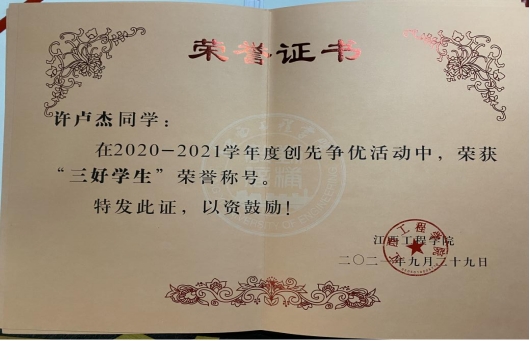 荣誉证书
许卢杰同学：
在2020-2021学年度创先争优活动中，荣获
“三好学生”荣誉称号。
特发此证，以资鼓励！
江西工程学院
二〇二一年九月二十九日